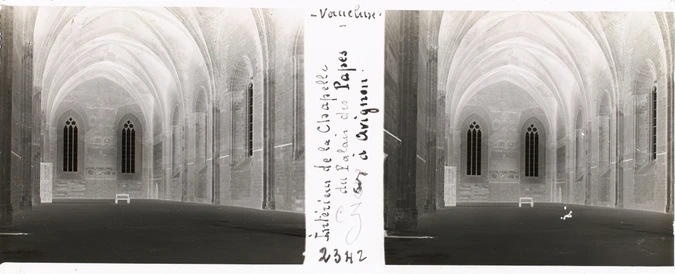 - Vaucluse -
Intérieur de la Chapelle
du Palais des Papes
à Avignon.
2342